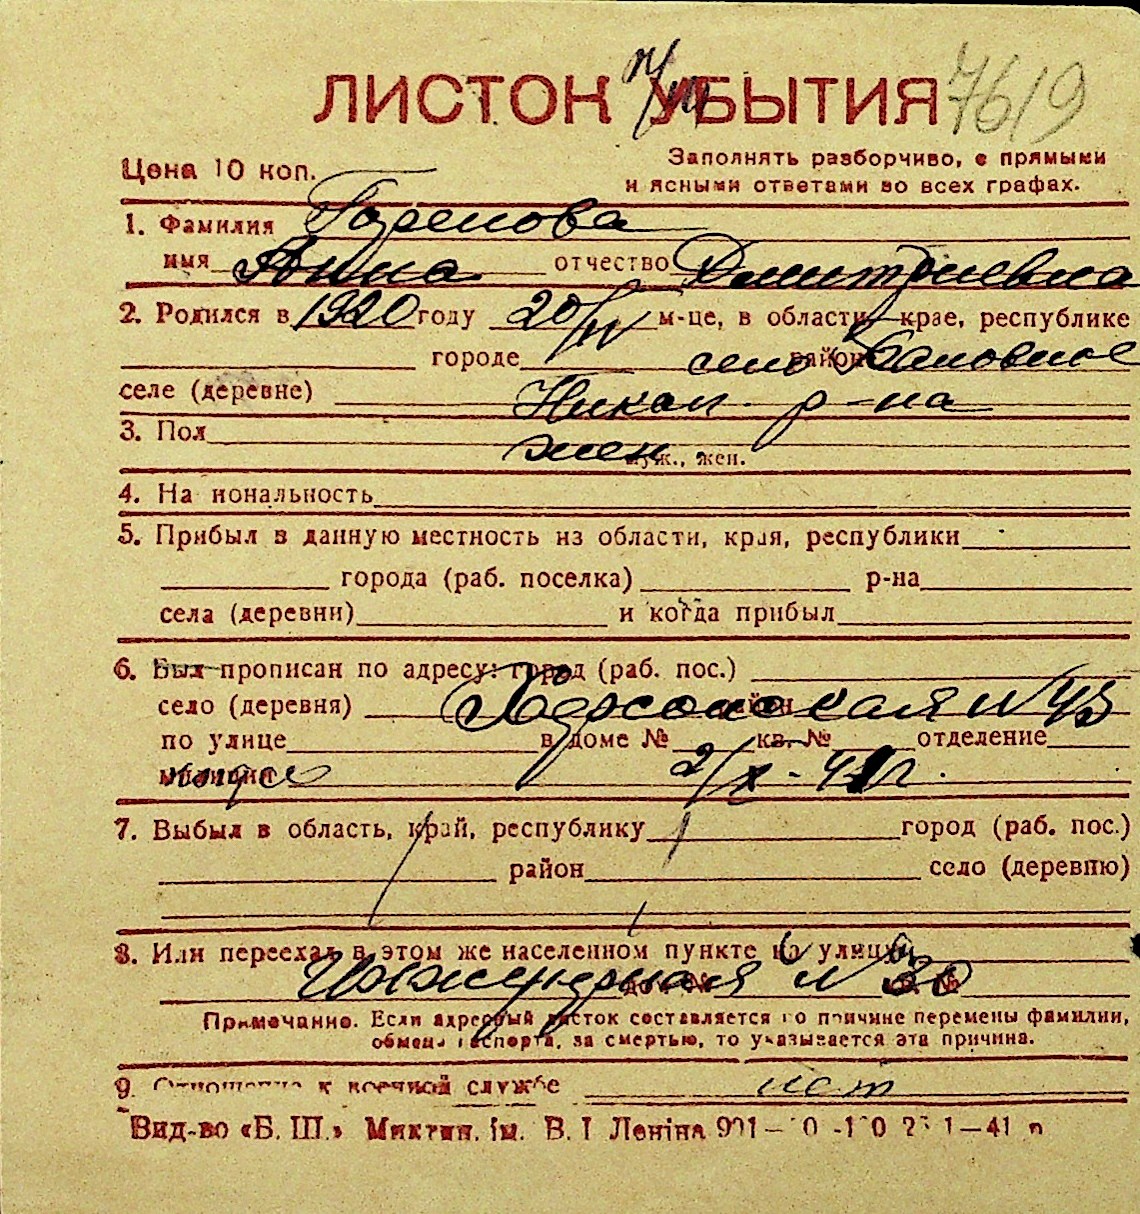 ЛИСТОК УБЫТИЯ 7619
Цена 10 коп.
Заполнять разборчиво, с прямыми
и ясными ответами во всех графах.
1. Фамилия
имя Анна отчество Дмитриевна
2. Родился в 1920 году 20/IV м-це, в области, крае, республике
городе район село Баловное
селе (деревне) Никол. р-на
3. Пол жен
муж., жен.
4. Национальность
5. Прибыл в данную местность из области, края, республики
города (раб. поселка) р-на
села (деревни) и когда прибыл
6. Был прописан по адресу: город (раб. пос.)
село (деревня) район Херсонская № 43
по улице в доме № кв. № отделение
милиции 2/X-41 г.
7. Выбыл в область, край, республику город (раб. пос.)
район село (деревню)
8. Или переехал в этом же населенном пункте на улицу
Инжунрная № 30 дом № кв. №
Примечание. Если адресный листок составляется по причине перемены фамилии,
обмена паспорта, за смертью, то указывается эта причина.
9. Отношение к военной службе нет
Вид-во «Б. Ш.» Микτин. Ім. В. І Леніна